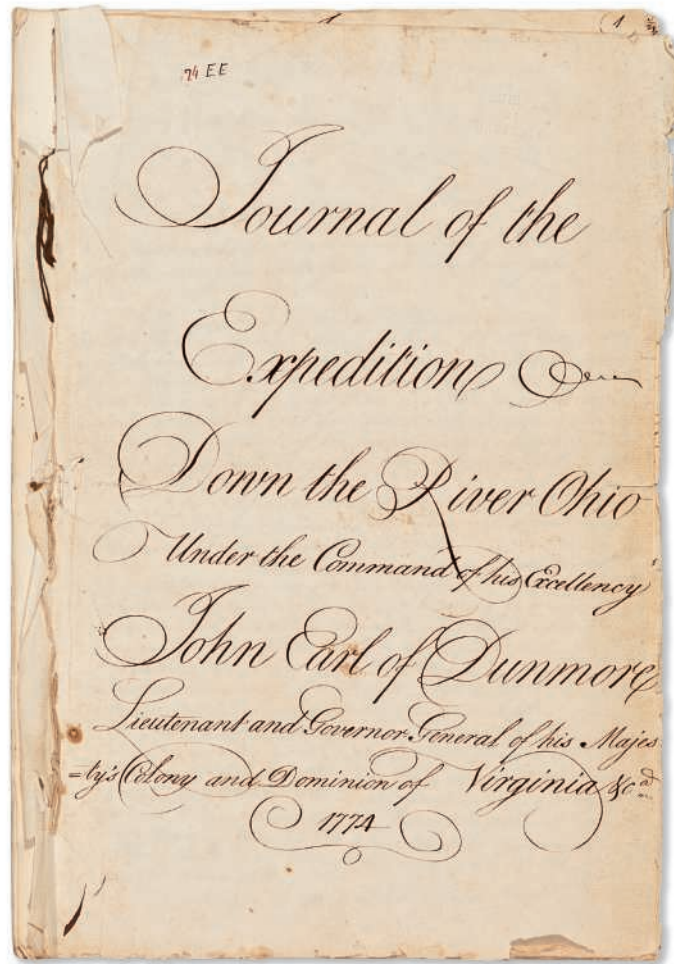 1 (1
74 EE
Journal of the
Expedition
Down the River Ohio
Under the Command of his Excellency
John Earl of Dunmore
Lieutenant and Governor General of his Majes
=ty's Colony and Dominion of Virginia &ca
1774